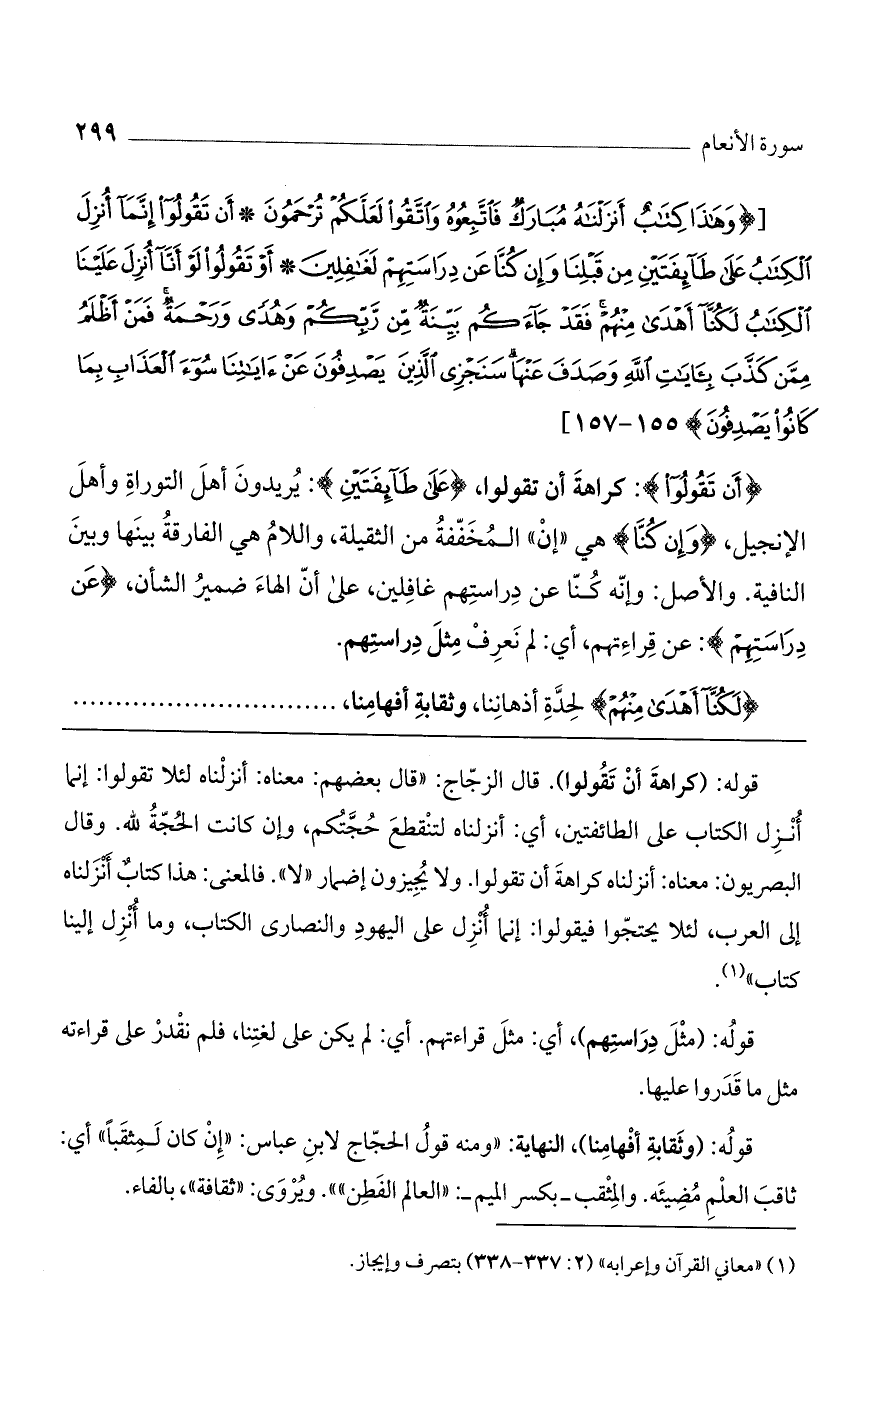 سورة الأنعام ٢٩٩
[﴿وَهَٰذَا كِتَٰبٌ أَنزَلْنَٰهُ مُبَارَكٌ فَٱتَّبِعُوهُ وَٱتَّقُوا۟ لَعَلَّكُمْ تُرْحَمُونَ * أَن تَقُولُوٓا۟ إِنَّمَآ أُنزِلَ
ٱلْكِتَٰبُ عَلَىٰ طَآئِفَتَيْنِ مِن قَبْلِنَا وَإِن كُنَّا عَن دِرَاسَتِهِمْ لَغَٰفِلِينَ * أَوْ تَقُولُوا۟ لَوْ أَنَّآ أُنزِلَ عَلَيْنَا
ٱلْكِتَٰبُ لَكُنَّآ أَهْدَىٰ مِنْهُمْ ۚ فَقَدْ جَآءَكُم بَيِّنَةٌ مِّن رَّبِّكُمْ وَهُدًى وَرَحْمَةٌ ۚ فَمَنْ أَظْلَمُ
مِمَّن كَذَّبَ بِـَٔايَٰتِ ٱللَّهِ وَصَدَفَ عَنْهَا ۗ سَنَجْزِى ٱلَّذِينَ يَصْدِفُونَ عَنْ ءَايَٰتِنَا سُوٓءَ ٱلْعَذَابِ بِمَا
كَانُوا۟ يَصْدِفُونَ﴾ ١٥٥-١٥٧]
﴿أَن تَقُولُوٓا۟﴾: كراهةَ أن تقولوا، ﴿عَلَىٰ طَآئِفَتَيْنِ﴾: يُريدونَ أهلَ التوراةِ وأهلَ
الإنجيل، ﴿وَإِن كُنَّا﴾ هي «إنْ» المُخَفّفةُ من الثقيلة، واللامُ هي الفارقةُ بينَها وبينَ
النافية. والأصل: وإنّه كُنّا عن دِراستِهم غافِلين، علىٰ أنّ الهاءَ ضميرُ الشأن، ﴿عَن
دِرَاسَتِهِمْ﴾: عن قِراءتِهم، أي: لم نَعرِفْ مِثلَ دِراستِهم.
﴿لَكُنَّآ أَهْدَىٰ مِنْهُمْ﴾ لِحدَّةِ أذهانِنا، وثقابةِ أفهامِنا، ...............................
قوله: (كراهةَ أنْ تَقُولوا). قال الزجّاج: «قال بعضهم: معناه: أنزلْناه لئلا تقولوا: إنما
أُنْزِل الكتاب على الطائفتين، أي: أنزلناه لتنْقطعَ حُجَّتُكم، وإن كانت الحُجّةُ لله. وقال
البصريون: معناه: أنزلناه كراهةَ أن تقولوا. ولا يُجِيزون إضمار «لا». فالمعنى: هذا كتابٌ أَنْزَلناه
إلى العرب، لئلا يحتجّوا فيقولوا: إنما أُنْزِل على اليهودِ والنصارى الكتاب، وما أُنْزِل إلينا
كتاب»(١).
قولُه: (مثْلَ دِرَاستِهم)، أي: مثلَ قراءتهم. أي: لم يكن على لغتِنا، فلم نقْدرْ على قراءته
مثل ما قَدَروا عليها.
قولُه: (وثَقابةِ أفْهامِنا)، النهاية: «ومنه قولُ الحجّاج لابنِ عباس: «إنْ كان لَمِثقَباً» أي:
ثاقبَ العلْمِ مُضِيئَه. والمِثْقب ـ بكسر الميم ـ: «العالم الفَطِن»». ويُرْوَى: «ثقافة»، بالفاء.
(١) «معاني القرآن وإعرابه» (٢: ٣٣٧-٣٣٨) بتصرف وإيجاز.